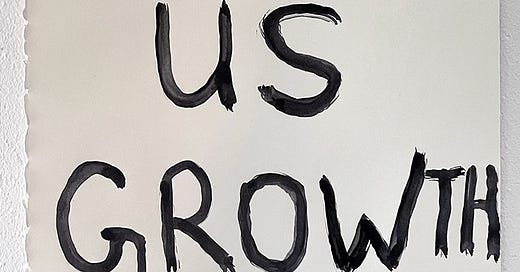 US
GROWTH